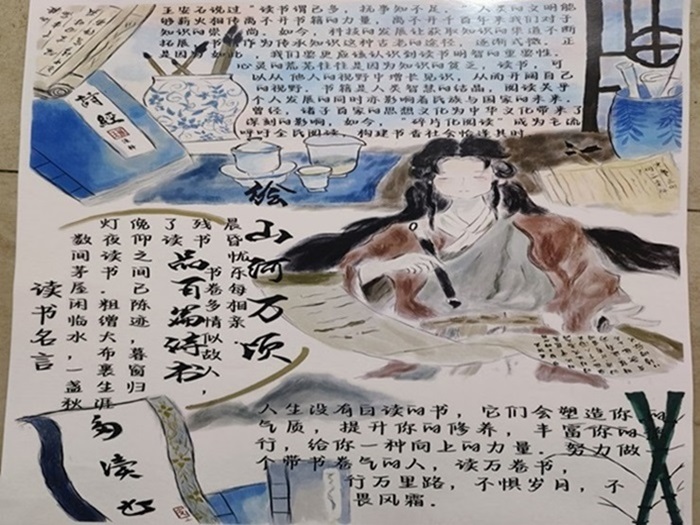 王安石说过"读书谓已多，抚事知不足。"人类的文明能
够薪火相传离不开书籍的力量，离不开千百年来我们对于
知识的崇尚。如今，科技的发展让获取知识的渠道不断
拓展，书
作为传承知识这种古老的途径，逐渐式微。正
是因为如此，我们要更应该认识到读书明智的重要性。
心灵的荒芜往往是因为知识的贫乏，读书，可
以从他人的视野中增长见识，从而开阔自己
的视野，书籍是人类智慧的结晶，阅读关乎
个人发展的同时亦影响着民族与国家的未来，
曾经，诸子百家的思想文化为中华文化带来了
深刻的影响，如今，"碎片化阅读"成为主流
呼吁全民阅读，构建书香社会恰逢其时
诗经
绘山河万顷
品百篇诗书
晨昏忧乐每相亲
书卷多情似故人，
残书
了读
俛仰之间已陈迹，暮窗归
灯夜读书。粗缯大布裹生涯
数间茅屋闲临水，一盏秋
读书名言
多读书
人生没有白读的书，它们会塑造你的
气质，提升你的修养，丰富你的
行，给你一种向上的力量。努力做
个带书卷气的人，读万卷书，
行万里路，不惧岁月，不
畏风霜。